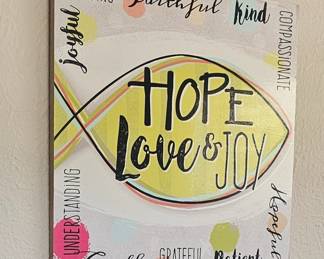 Faithful
Kind
joyful
COMPASSIONATE
HOPE
Love & JOY
UNDERSTANDING
Hopeful
GRATEFUL
Patient